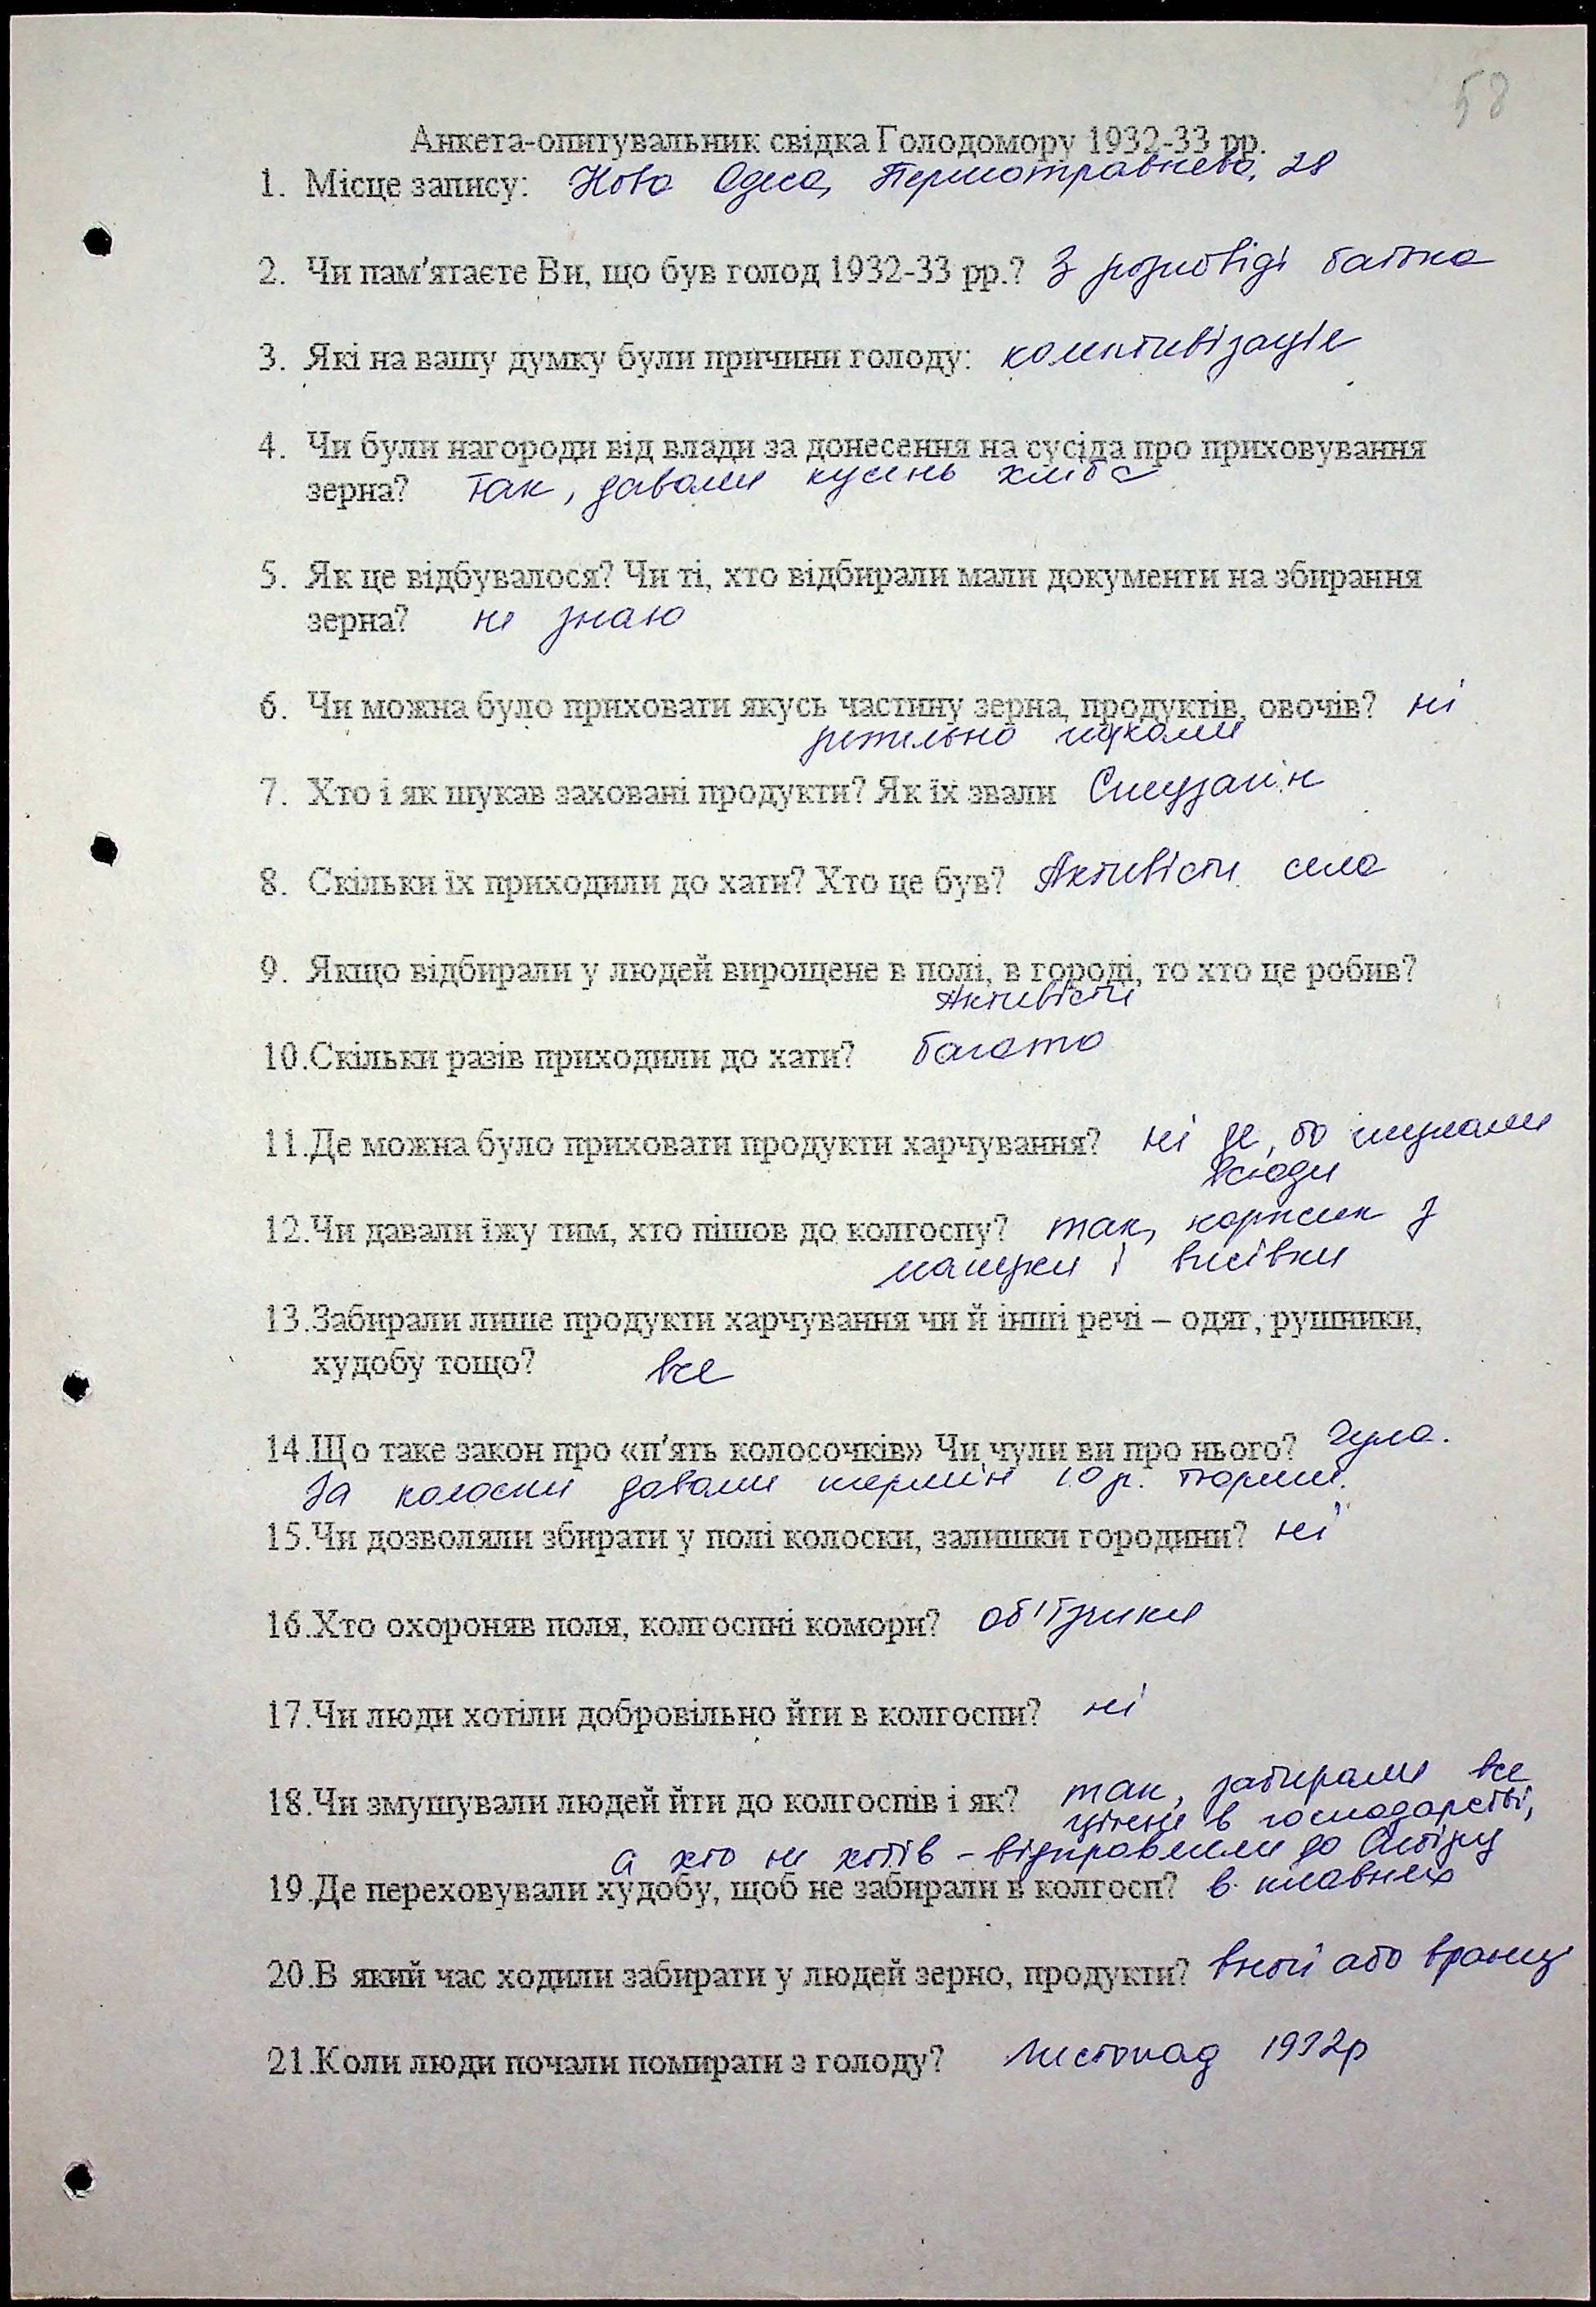 58
Анкета-опитувальник свідка Голодомору 1932-33 рр.
1. Місце запису: Нова Одеса, Першотравнева, 28
2. Чи пам'ятаєте Ви, що був голод 1932-33 рр.? З розповіді батька
3. Які на вашу думку були причини голоду: колективізація
4. Чи були нагороди від влади за донесення на сусіда про приховування
зерна? Так, давали кусень хліба
5. Як це відбувалося? Чи ті, хто відбирали мали документи на збирання
зерна? не знаю
6. Чи можна було приховати якусь частину зерна, продуктів, овочів? ні
ретельно шукали
7. Хто і як шукав заховані продукти? Як їх звали Спецзагін
8. Скільки їх приходили до хати? Хто це був? Активісти села
9. Якщо відбирали у людей вирощене в полі, в городі, то хто це робив?
Активісти
10.Скільки разів приходили до хати? багато
11.Де можна було приховати продукти харчування? ні де, бо шукали
всюди
12.Чи давали їжу тим, хто пішов до колгоспу? так, коржик з
макухи і висівки
13.Забирали лише продукти харчування чи й інші речі – одяг, рушники,
худобу тощо? все
14.Що таке закон про «п'ять колосочків» Чи чули ви про нього? Чула.
За колоски давали термін 10 р. тюрми.
15.Чи дозволяли збирати у полі колоски, залишки городини? ні
16.Хто охороняв поля, колгоспні комори? об'їзники
17.Чи люди хотіли добровільно йти в колгоспи? ні
18.Чи змушували людей йти до колгоспів і як? так, забирали все
цінне в господарстві,
а хто не хотів – відправляли до Сибіру
19.Де переховували худобу, щоб не забирали в колгосп? в плавнях
20.В який час ходили забирати у людей зерно, продукти? вночі або вранці
21.Коли люди почали помирати з голоду? листопад 1932р